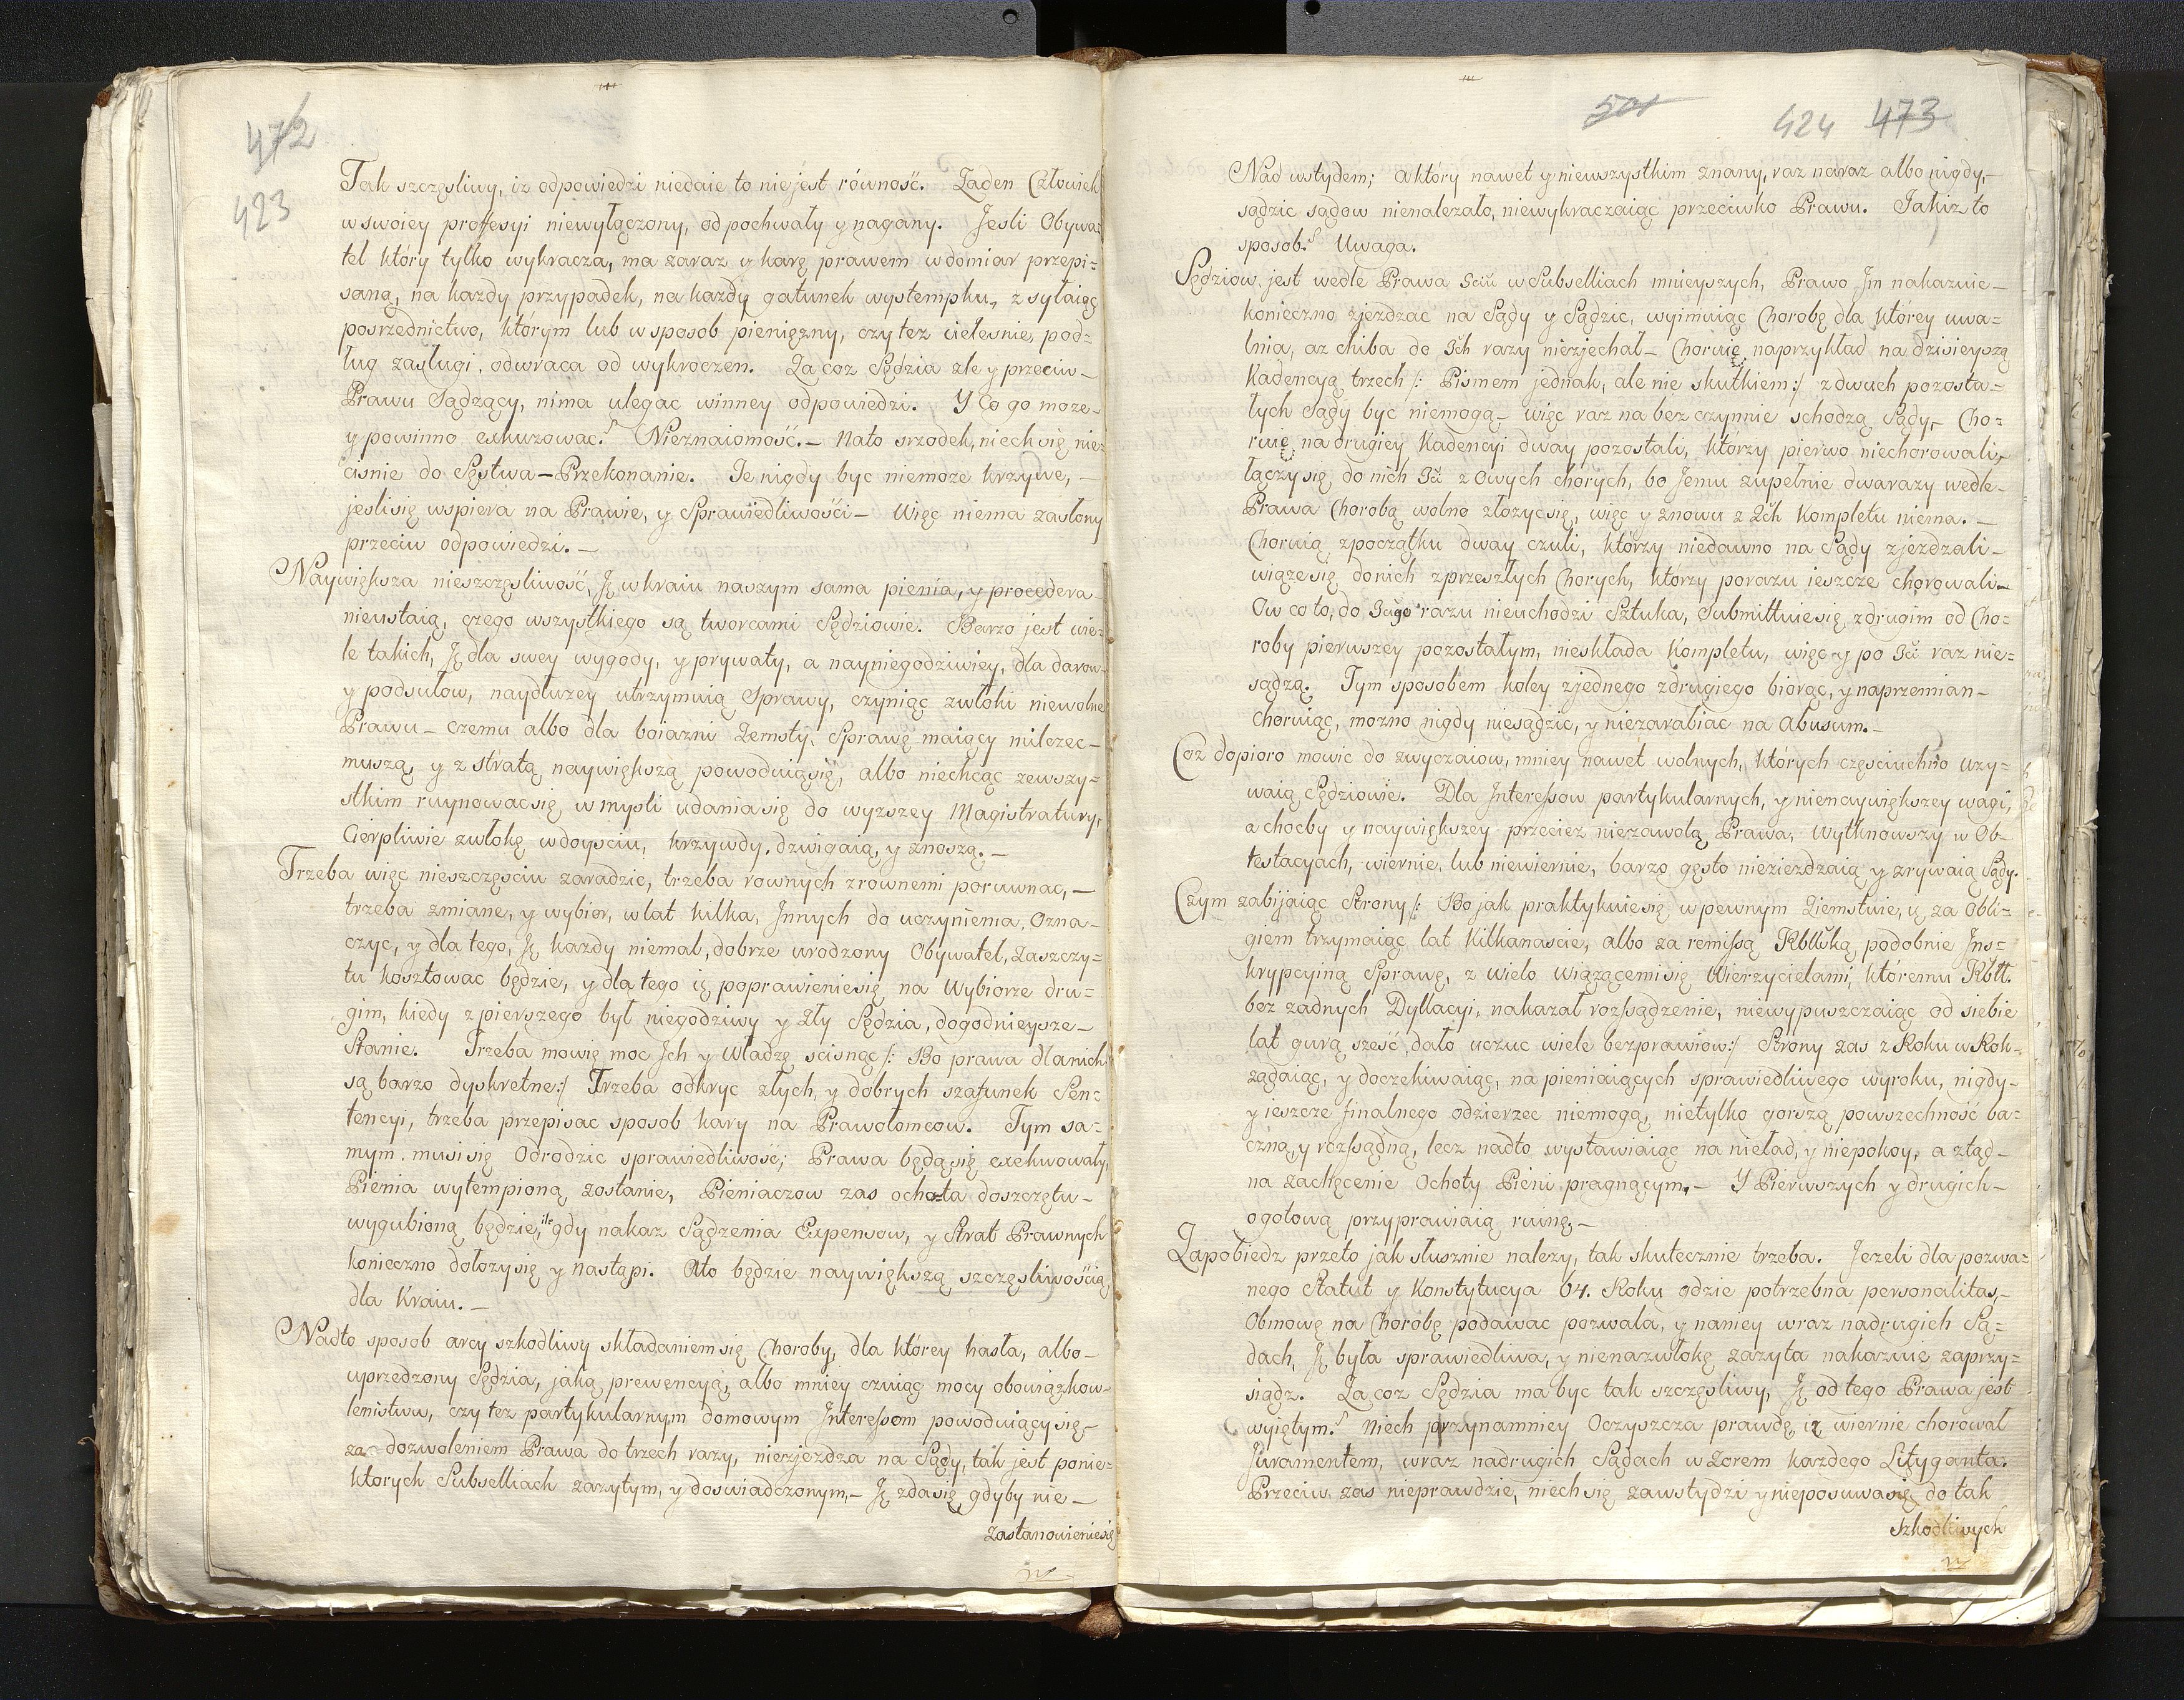 472
423
Tak szczęsliwy, iz odpowiedzi niedaie to nie jest równość. Zaden Człowiek
w swoiey proffesyi niewyłączony, od pochwały y nagany. Jesli Obywa=
tel który tylko wykracza, ma zaraz y karę prawem w domiar przepi=
saną, na kazdy przypadek, na kazdy gatunek wystempku, z syłaiąc
posrzednictwo, którym lub w sposob pienięzny, czy tez cielesnie, pod=
ług zasługi, odwraca od wykroczen. Za coz Sędzia zle y przeciw–
Prawu Sądzący, nima ulegac winney odpowiedzi. Y Co go moze–
y powinno exkuzowac? Nieznaiomość.– Nato srzodek, niech się nie=
cisnie do Sęstwa – Przekonanie. Te nigdy byc niemoze krzywe, –
jesli się wspiera na Prawie, y Sprawiedliwości – Więc niema zasłony
przeciw odpowiedzi. –
Naywiększa nieszczęsliwość, Iż w kraiu naszym sama pienia, y procedera
nieustaią, czego wszystkiego są tworcami Sędziowie. Barzo jest wie=
le takich, Iż dla swey wygody, y prywaty, a nayniegodziwiey, dla darow
y podsułow, naydłuzey utrzymuią Sprawy, czyniąc zwłoki niewolne
Prawu – czemu albo dla boiazni Zemsty, Sprawę maiący milczec–
muszą, y z stratą naywiększą powoduiąsię, albo niechcąc zewszy=
stkim ruynowac się, w mysli udania się do wyzszey Magistratury,
Cierpliwie zwłokę w doysciu, krzywdy, dzwigaią, y znoszą. –
Trzeba więc nieszczęsciu zaradzic, trzeba rownych zrownemi porownac, –
trzeba zmiane, y wybior, w lat kilka, Innych do uczynienia, Ozna–
czyc, y dla tego, Iż kazdy niemal, dobrze urodzony Obywatel, Zaszczy=
tu kosztowac będzie, y dla tego iż poprawieniesię na Wybiorze dru=
gim, kiedy z pierwszego był niegodziwy y Zły Sędzia, dogodnieysze–
Stanie. Trzeba mowię moc Ich y Władzę scisnąc /: Bo prawa dla nich
są barzo dyskretne :/ Trzeba odkryc złych, y dobrych szafunek Sen=
tencyi, trzeba przepisac sposob kary na Prawołomcow. Tym sa=
mym, musi się Odrodzic sprawiedliwość; Prawa będą się exekwowały,
Pienia wytempioną zostanie, Pieniaczow zas ochota doszczętu–
wygubioną będzie, ile gdy nakaz Sądzenia Expensow, y Strat Prawnych
konieczno dołozy się y nastąpi. Ato będzie naywiększą szczęsliwością
dla Kraiu. –
Nadto sposob arcy szkodliwy składaniem się Choroby, dla której hasła, albo–
uprzedzony Sędzia, jaką prewencyą, albo mniey czuiąc mocy obowiązkow–
lenistwu, czy tez partykularnym domowym Interessom powoduiący się,–
za dozwoleniem Prawa do trzech razy, niezjezdza na Sądy, tak jest ponie=
ktorych Subselliach zazytym, y doswiadczonym,– Iż zda się gdyby nie–
zastanowienie się
501 424 473
Nad wstydem; a który nawet y niewszystkim znany, raz naraz albo nigdy,–
sądzic sądow nienalezało, niewykraczaiąc przeciwko Prawu. Jakiz to
sposob? Uwaga.
Sędziow jest wedle Prawa 5ciu w Subselliach mnieyszych, Prawo Im nakazuie–
konieczno zjezdzac na Sądy y Sądzic, wyimuiąc Chorobę dla którey uwa=
lnia, az chiba do 3ch razy niezjechał – Choruię naprzykład na dzisieyszą
Kadencyą trzech /: Pismem jednak, ale nie skutkiem :/ z dwuch pozosta=
łych Sądy byc niemogą – więc raz na bez czynnie schodzą Sądy,– Cho=
ruię na drugiey Kadencyi dway pozostali, ktorzy pierwo niechorowali,
łączy się do nich 3ci z Owych chorych, bo Jemu zupełnie dwa razy wedle–
Prawa Chorobą wolno złozyc się, więc y znowu z 2ch Kompletu niema. –
Choruią zpoczątku dway czuli, którzy niedawno na Sądy zjezdzali–
wiąze się do nich z przeszłych Chorych, którzy porazu ieszcze chorowali –
Ow co to, do 3ciego razu nieuchodzi Sztuka, Submittuie się, z drugim od Cho=
roby pierwszey pozostałym, nieskłada Kompletu, więc y po 3ci raz nie=
sądzą. Tym sposobem koley z jednego z drugiego biorąc, y naprzemian–
Choruiąc, mozno nigdy niesądzic, y niezarabiac na Abusum. –
Coz dopioro mowic do zwyczaiow, mniey nawet wolnych, których częsciuchno uzy=
waią Sędziowie. Dla Interessow partykularnych, y nienaywiększey wagi,
a chocby y naywiększey przeciez niezawolą Prawa, wytknowszy w Ob=
testacyach, wiernie, lub niewiernie, barzo gęsto niezjezdzaią y zrywaią Sądy.
Czym zabijaiąc Strony /: Bo jak praktykuie się w pewnym Ziemstwie, iż za Obli=
giem trzymaiąc lat Kilkanascie, albo za remissą Rbllską podobnie Ins=
krypcyiną Sprawę, z wielo wiązącemi się Wierzycielami, któremu Rbłł.
bez zadnych Dyllacyi, nakazał rozsądzenie, niewypuszczaiąc od siebie
lat gurą szesć, dało uczuc wiele bezprawiow :/ Strony zas z Roku w Rok–
ządaiąc, y doczekiwaiąc, na pieniaiących sprawiedliwego wyroku, nigdy–
y ieszcze finalnego odzierzec niemogą, nietylko gorszą powszechność ba=
czną, y rozsądną, lecz nadto wystawiaiąc na nieład, y niepokoy, a ztąd–
na zachęcenie Ochoty Pieni pragnącym,– Y Pierwszych y drugich–
ogołową przyprawiaią ruinę, –
Zapobiedz przeto jak słusznie nalezy, tak skutecznie trzeba. Jezeli dla pozwa=
nego Statut y Konstytucya 64. Roku gdzie potrzebna personalitas,–
Obmowę na Chorobę podawac pozwala, y namiey wraz nadrugich Są=
dach, Iż była sprawiedliwa, y nienazwłokę zazyta nakazuie zaprzy=
siądz. Za coz Sędzia ma byc tak szczęsliwy, Iż od tego Prawa jest
wyiętym? Niech przynamniey Oczyszcza prawdę iż wiernie chorował
Juramentem, wraz nadrugich Sądach w Zorem kazdego Lityganta.
Przeciw zas nieprawdzie, niech się zawstydzi y nieposuwa się do tak
szkodliwych